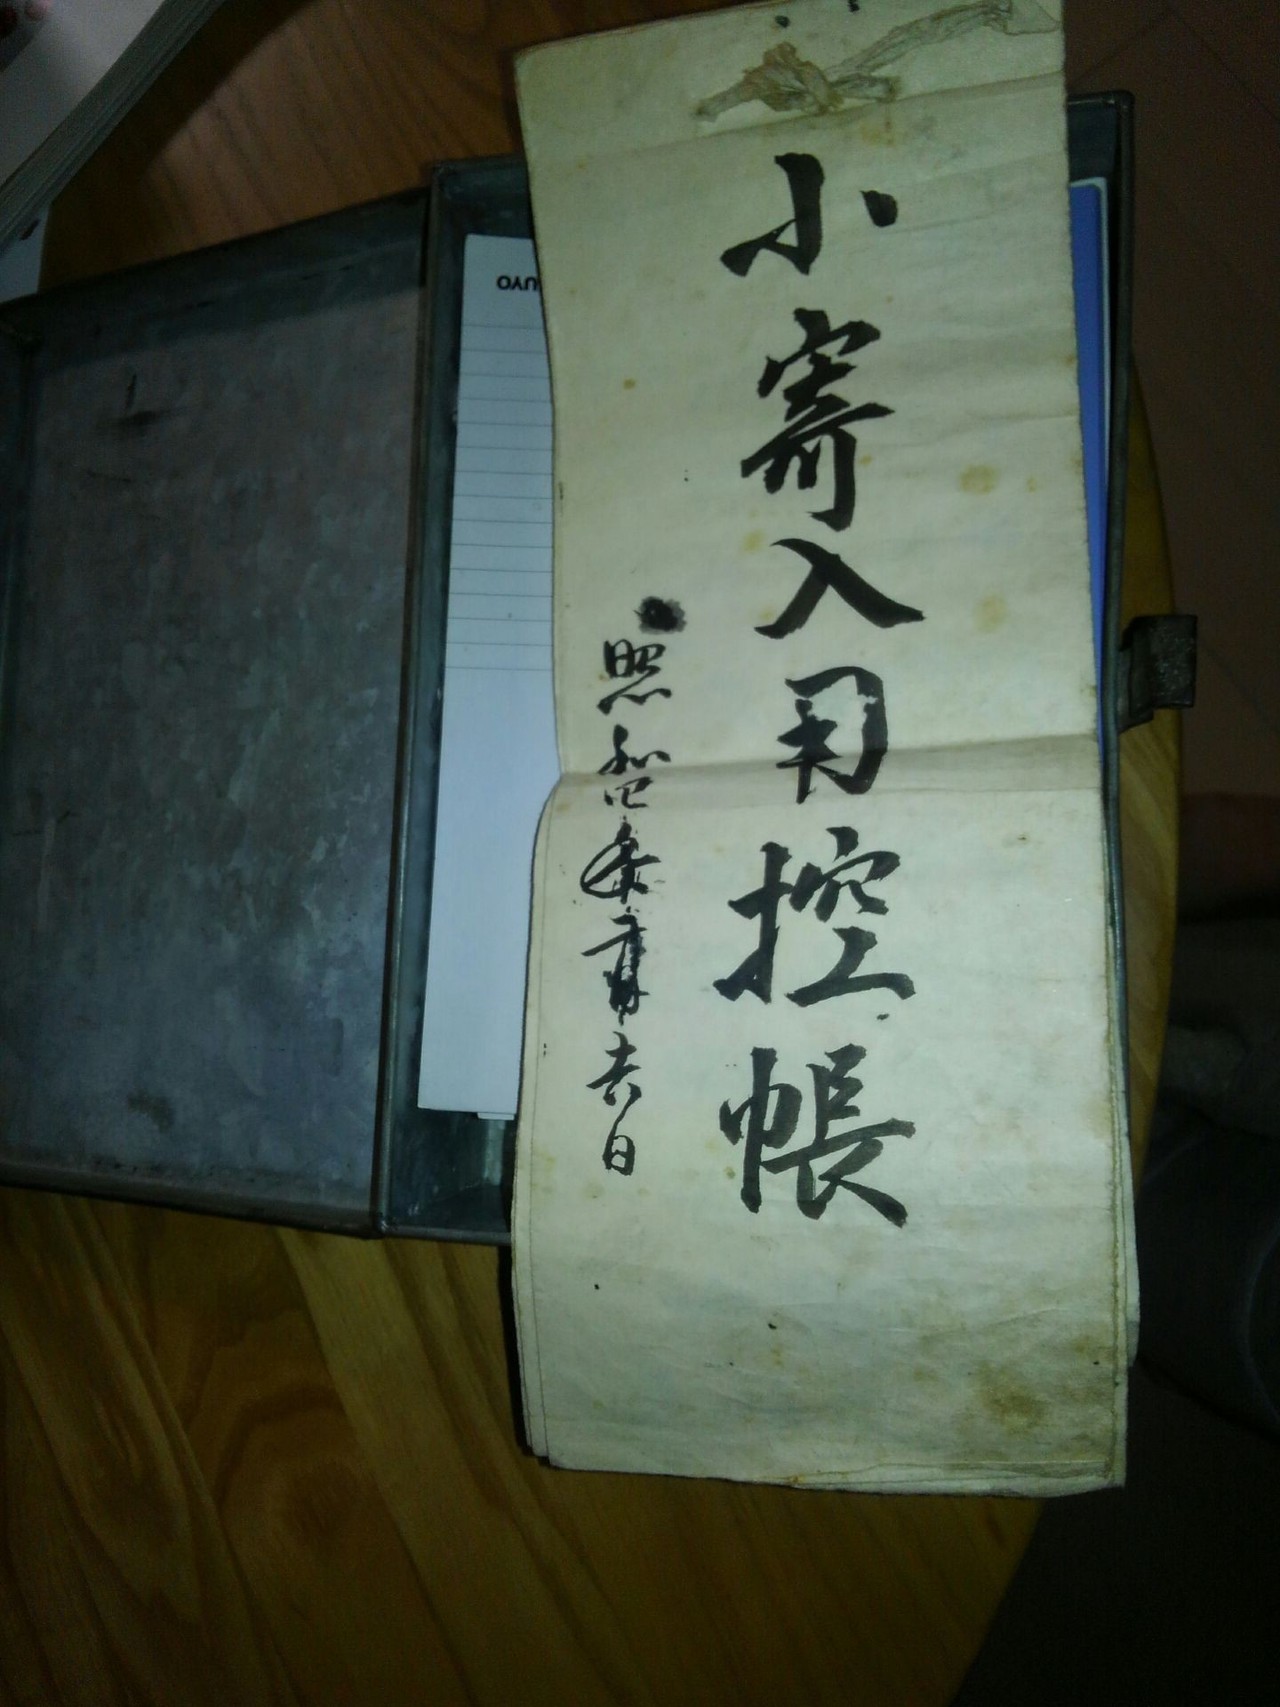 小寄入用控帳
照和四年 吉日
UYO